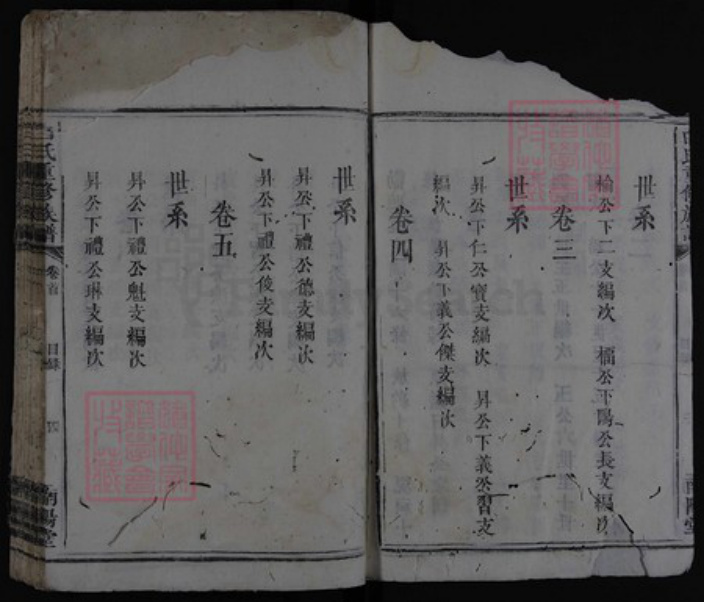 世系
榆公下二支編次 檽公下陽公長支編次
卷三
世系
昇公下仁公寶支編次 昇公下義公習支
編次 昇公下義公傑支編次
卷四
世系
昇公下禮公德支編次
昇公下禮公俊支編次
卷五
世系
昇公下禮公魁支編次
昇公下禮公琳支編次
氏重修族譜
卷首
目錄
四
南陽堂